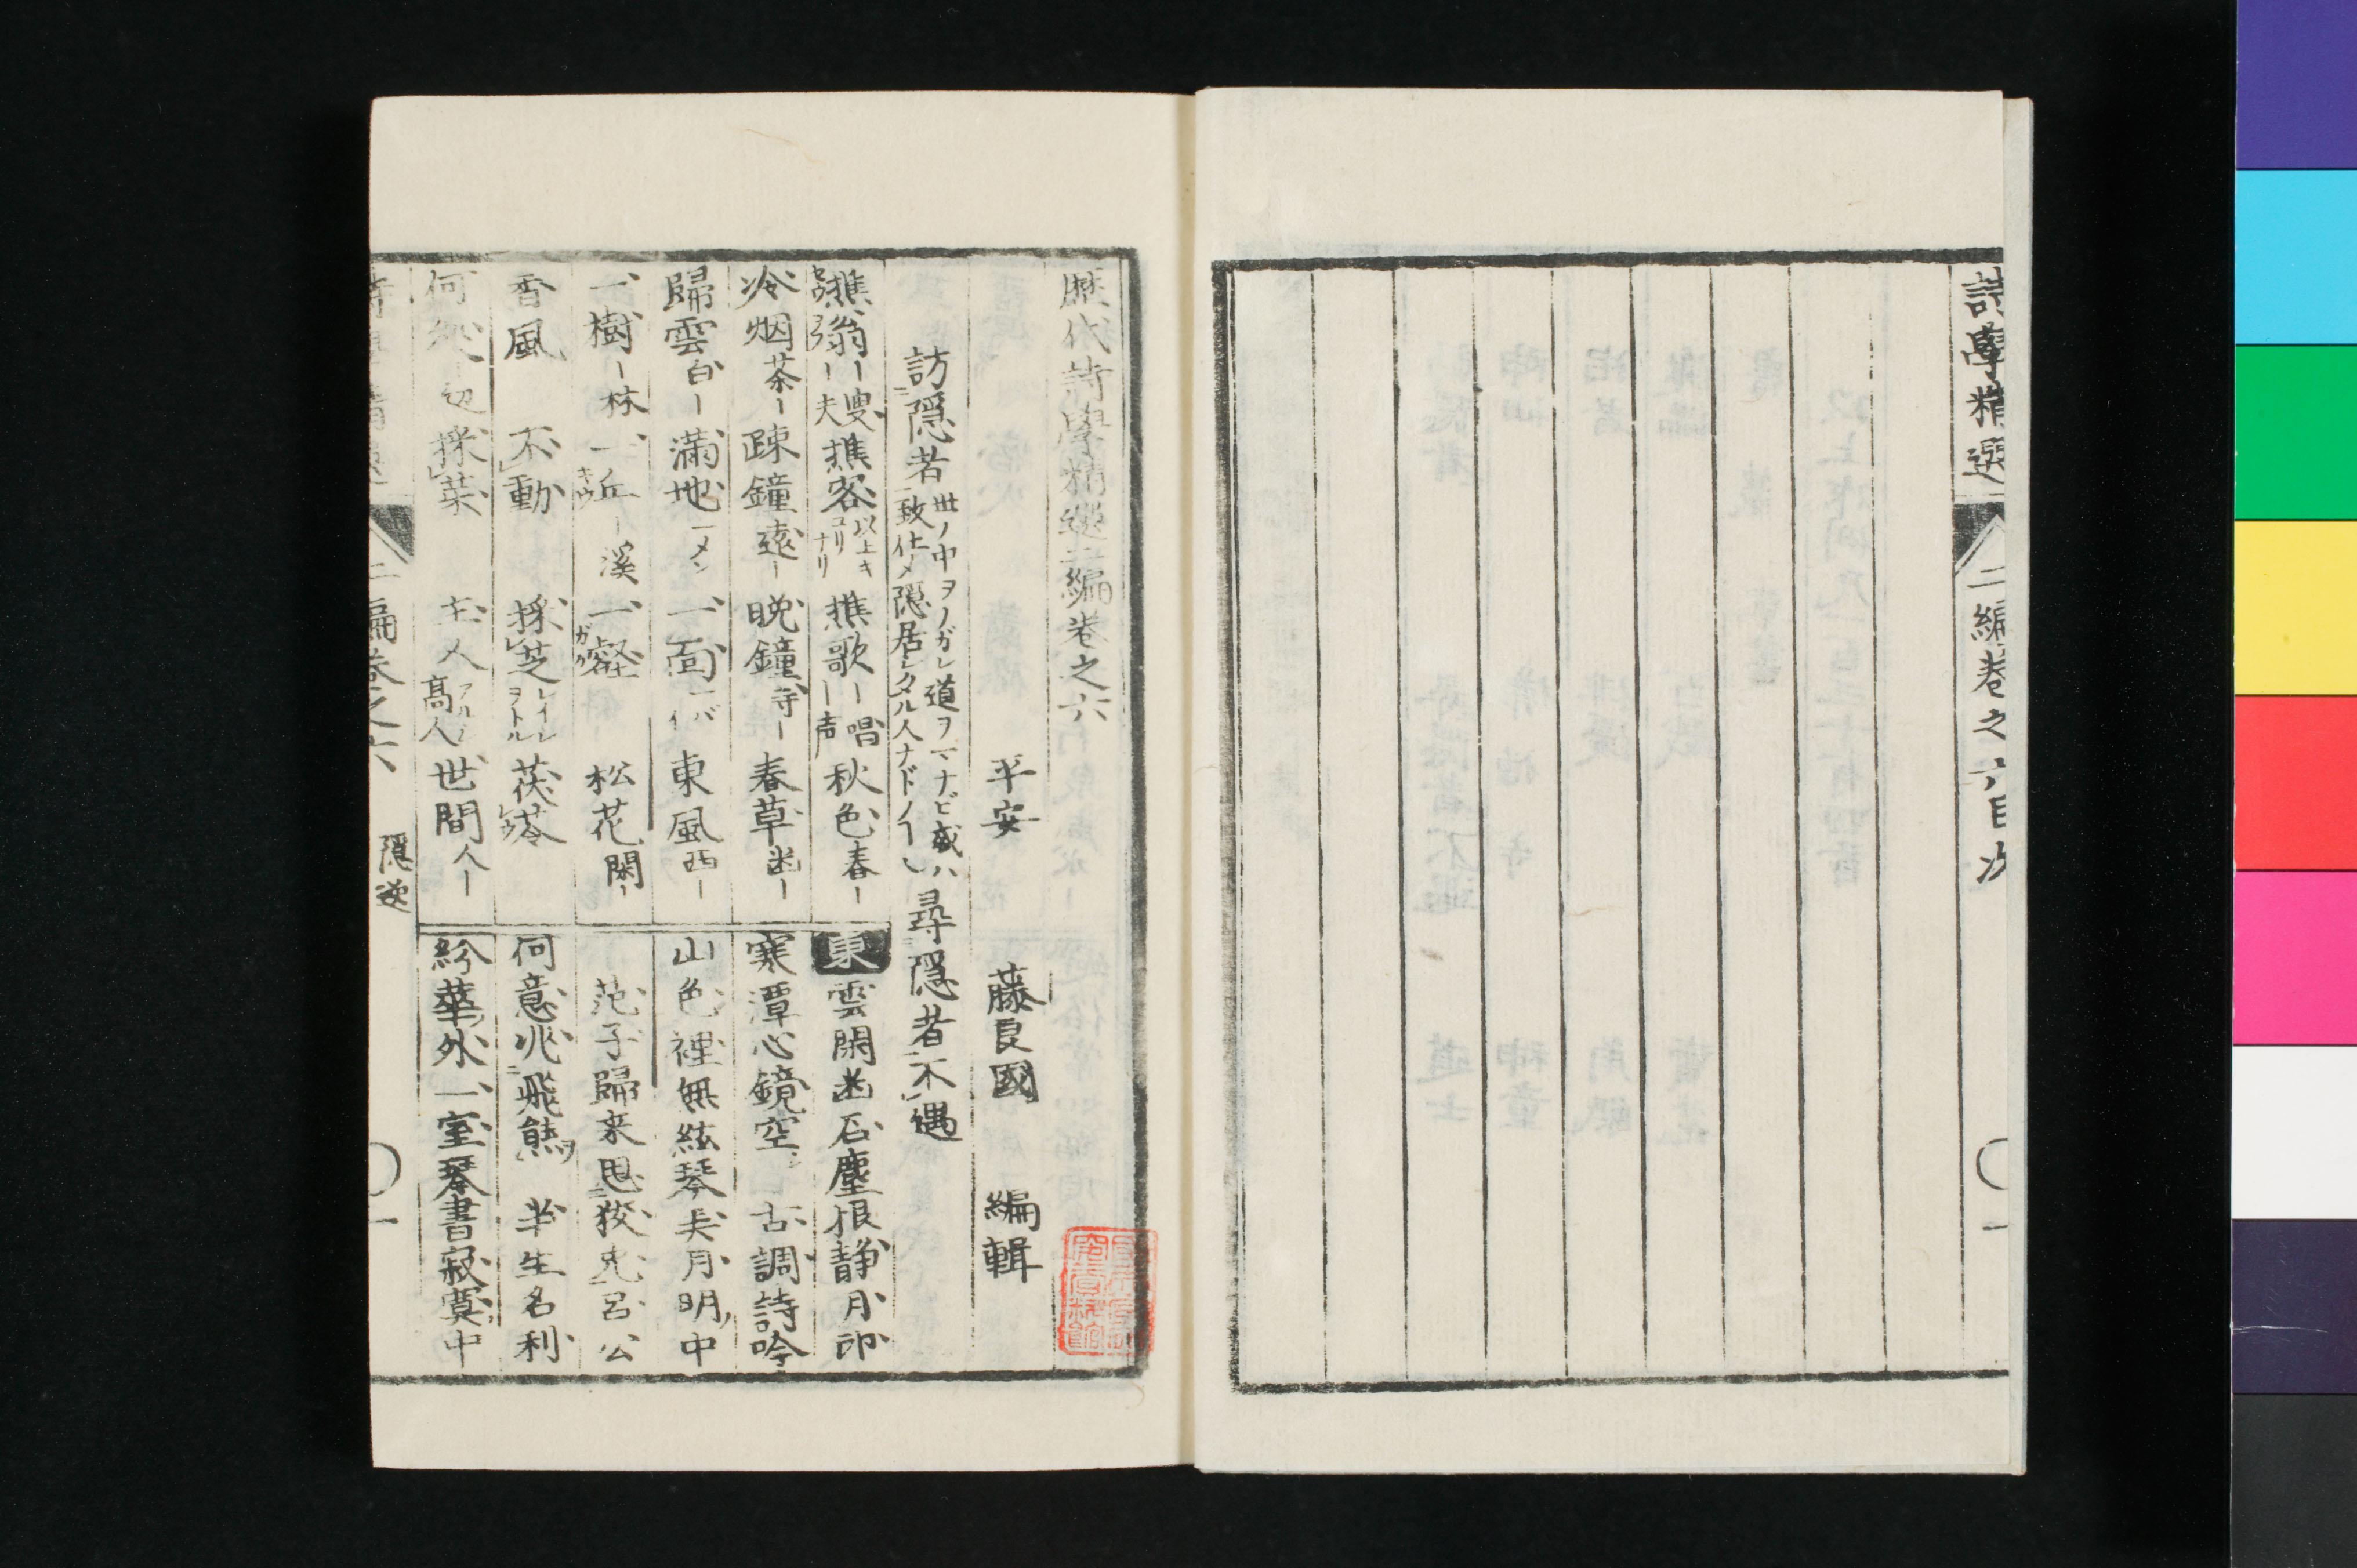 詩學精選
二編卷之六目次
一
歴代詩學精選二編卷之六
平安 藤良國 編輯
訪隠者 世ノ中ヲノガレ道ヲマナビ或ハ
致仕メ隠居レタル人ナドノ 尋隠者不遇
樵翁 叟 夫 樵客 以上キ
コリナリ 樵歌 唱 声 秋色 春
冷烟 茶 疎鐘 遠 晩鐘 寺 春草 幽
歸雲 白 滿地 一メン 一面 東風 西
一樹 林 一丘 キウ 溪 一壑 ガク 松花 閑
香風 不動 採芝 レイレヲトル 茯苓
何処 辺 採菜 主人 高人 世間 人
東 雲閑幽石塵根静月印
寒潭心鏡空 古調詩吟
山色裡無絃琴在月明中
范子歸来思狡兎呂公
何意兆飛熊 半生名利
紛華外一室琴書寂寞中
二編卷之六 隠逸
一